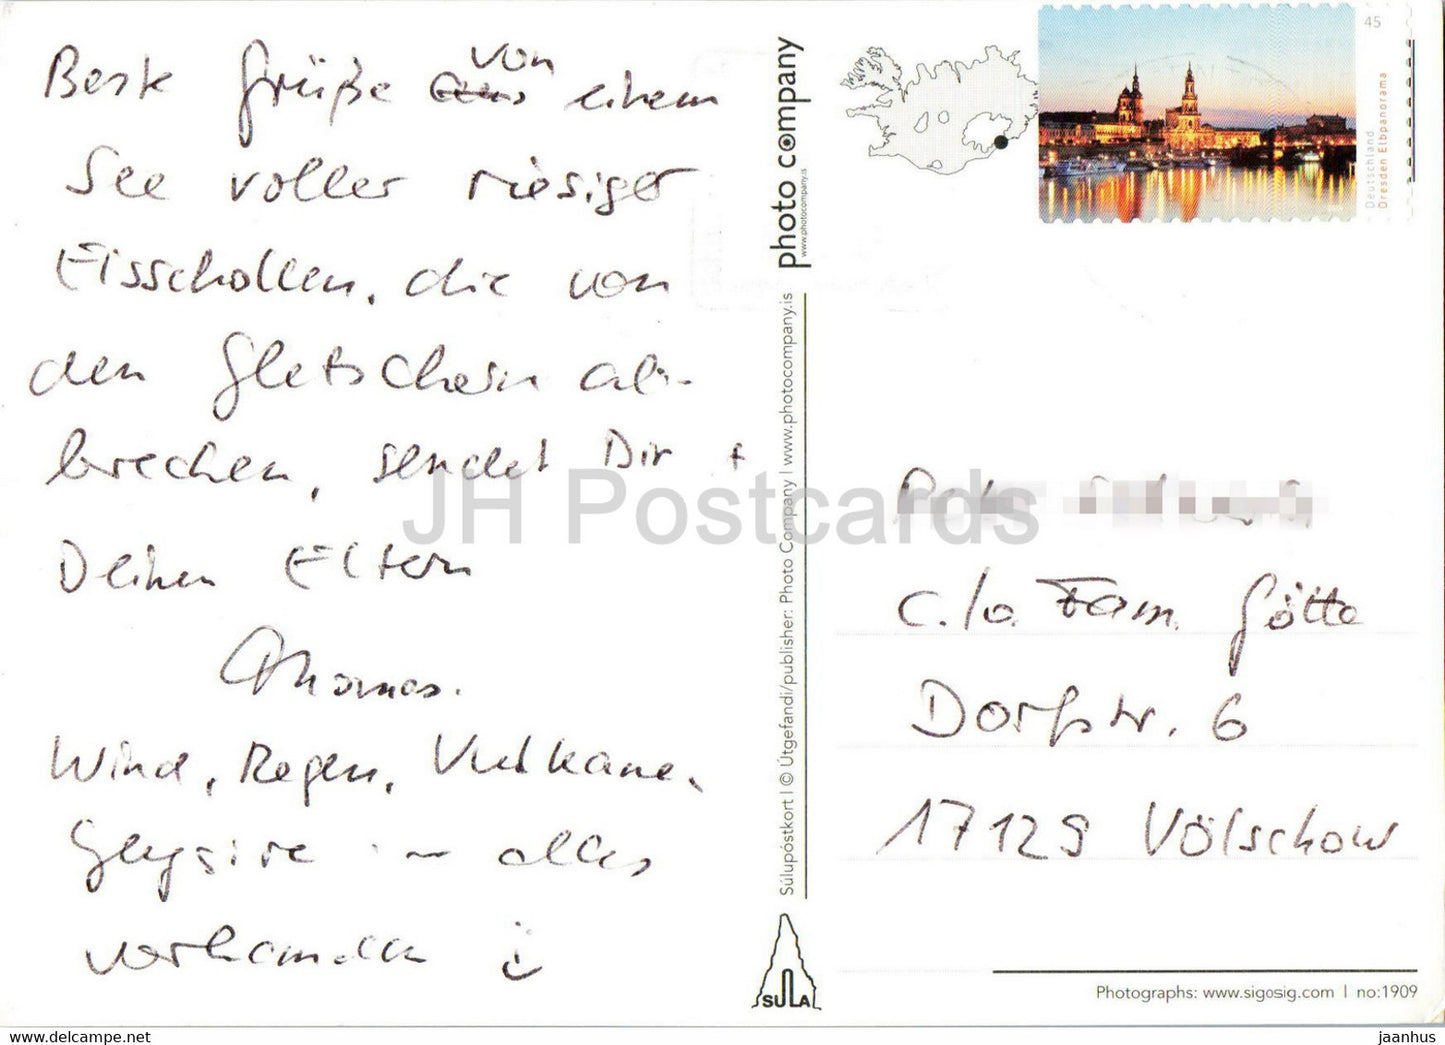 Beste Grüße von einem
See voller riesiger
Eisschollen, die von
den Gletschern ab-
brechen, sendet Dir +
Deinen Eltern
Thomas.
Wind, Regen, Vulkane,
Geysire – alles
vorhanden
photo company
www.photocompany.is
Súlupóstkort I © Útgefandi/publisher: Photo Company I www.photocompany.is
SULA
45
Deutschland
Dresden Elbpanorama
c./o. Fam. Götte
Dorfstr. 6
17129 Völschow
Photographs: www.sigosig.com I no:1909
JH Postcards
www.delcampe.net
jaanhus